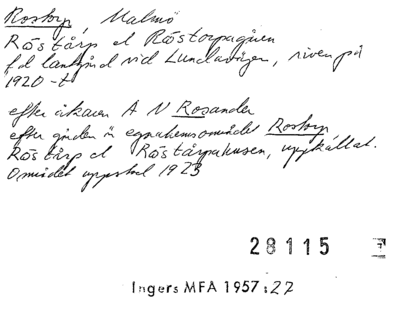 Rostorp, Malmö
Röstårp el Röstorpagåen
f d lantgård vid Lundavägen, riven på
1920-t
efter åkaren A N Rosander
efter gården är egnahemsområdet Rostorp
Röstårp el Röstårpahusen, uppkallat.
Området uppstod 1923
28115
Ingers MFA 1957:27